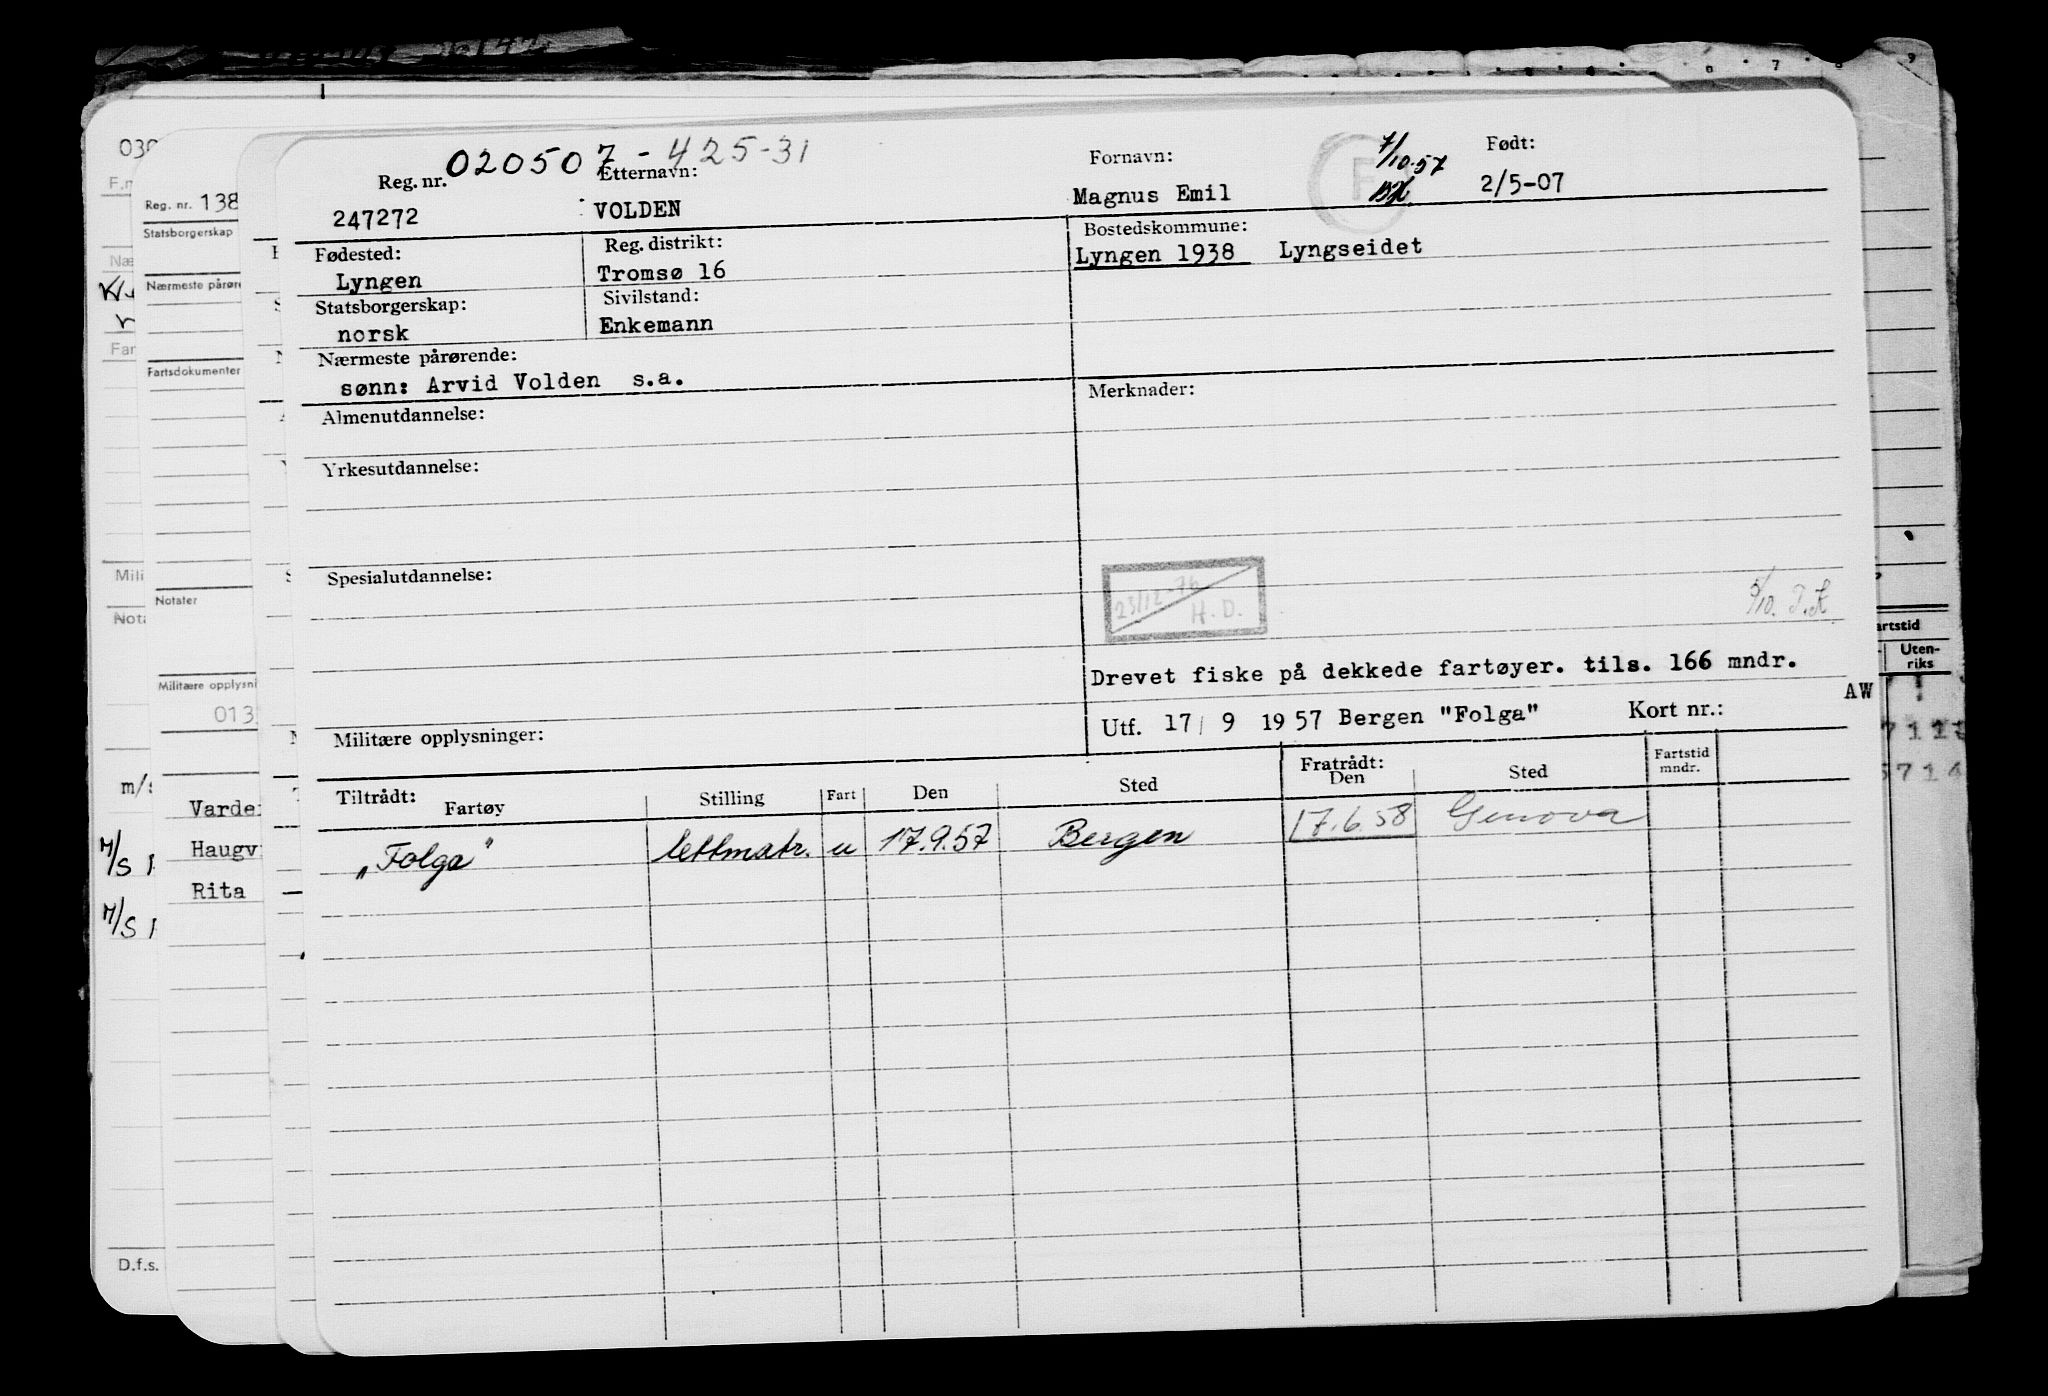 020507-425-31
Reg. nr. Etternavn: Fornavn: 7/10.57 Født:
247272 VOLDEN Magnus Emil F 2/5-07
Fødested: Reg. distrikt: Bostedskommune:
Lyngen Tromsø 16 Lyngen 1938 Lyngseidet
Statsborgerskap: Sivilstand:
norsk Enkemann
Nærmeste pårørende:
sønn: Arvid Volden s.a.
Almenutdannelse: Merknader:
Yrkesutdannelse:
Spesialutdannelse:
23/12-76 H.D.
5/10. T.K
Drevet fiske på dekkede fartøyer. tils. 166 mndr.
AW
Militære opplysninger: Utf. 17/ 9 1957 Bergen "Folga" Kort nr.:
Tiltrådt: Fratrådt:
Fartøy Stilling Fart Den Sted Den Sted Fartstid mndr.
"Folga" lettmatr. u 17.9.57 Bergen 17.6.58 Genova
030
F.n
Reg. nr. 138
Statsborgerskap
Næ
Nærmeste pårøre
Far
Fartsdokumenter
Mili
Notater
Nota
Militære opplysni
013
m/s
Varde
M/S
Haugv
Rita
M/S
D.f.s.
artstid
Uten-
riks
7 1 1
5 7 1 4
6 7 8 9